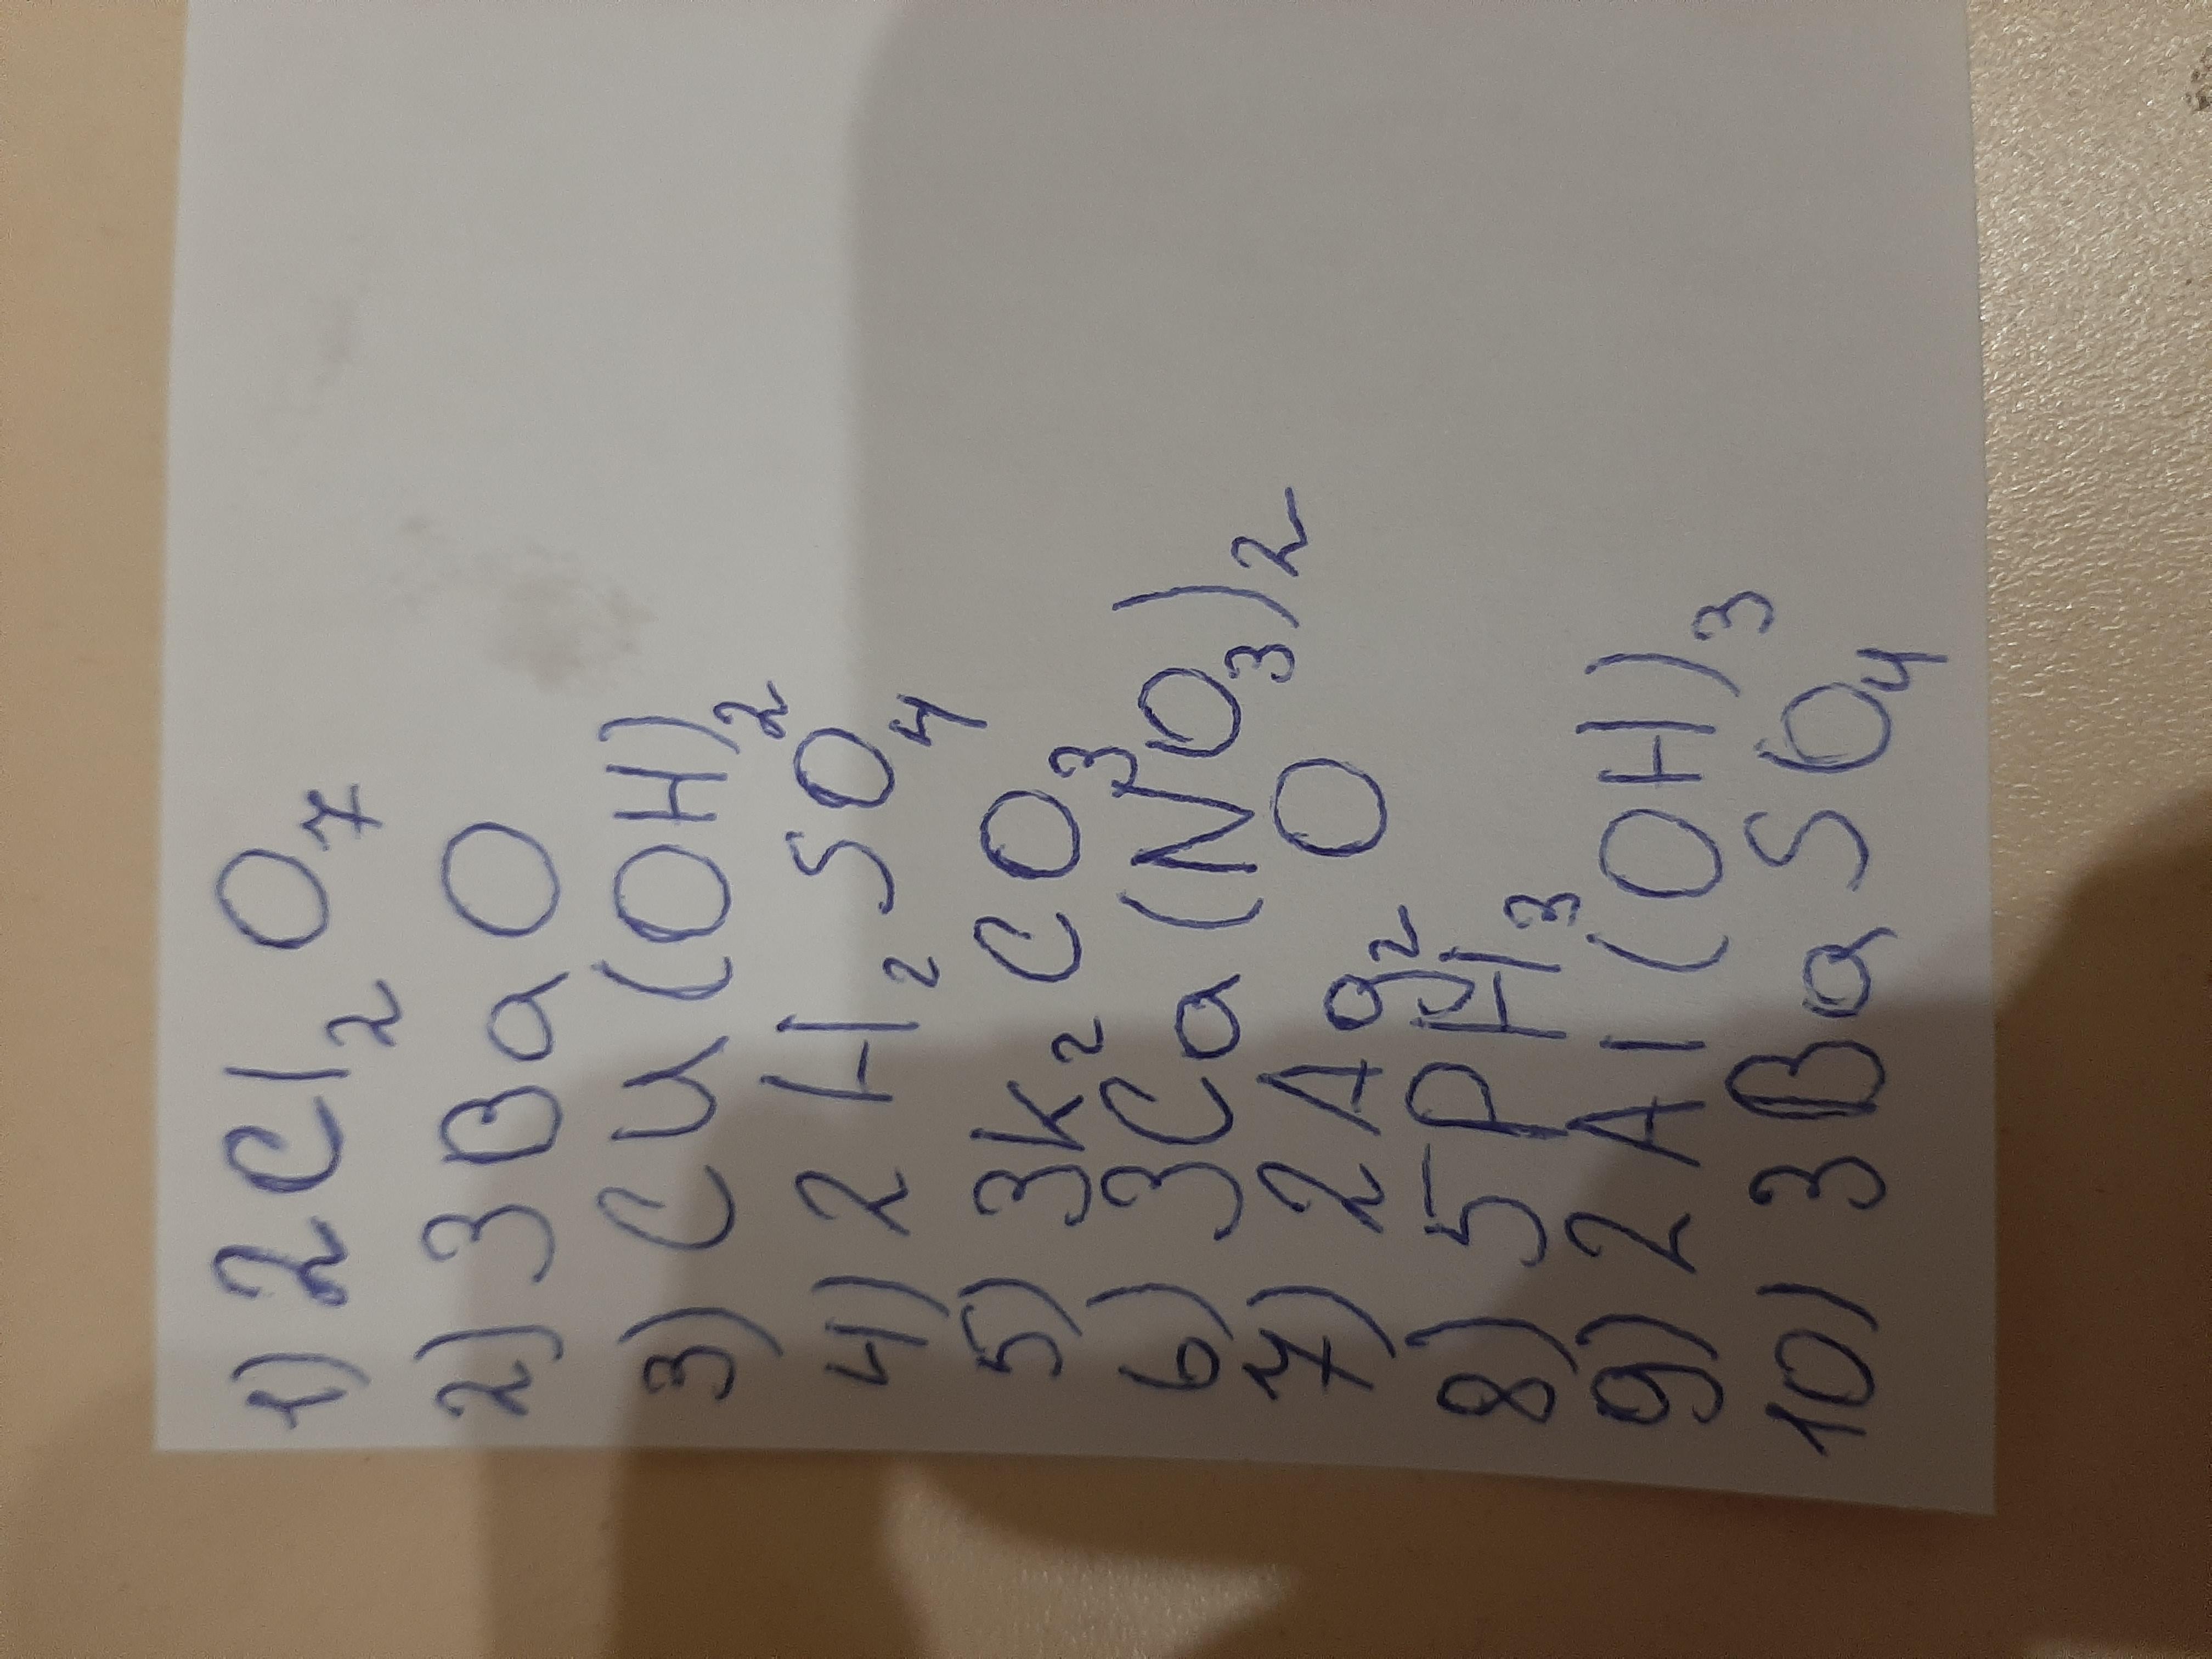 1) 2Cl₂O₇
2) 3BaO
3) Cu(OH)₂
4) 2H₂SO₄
5) 3K₂CO₃
6) 3Ca(NO₃)₂
7) 2Ag₂O
8) 5PH₃
9) 2Al(OH)₃
10) 3BaSO₄